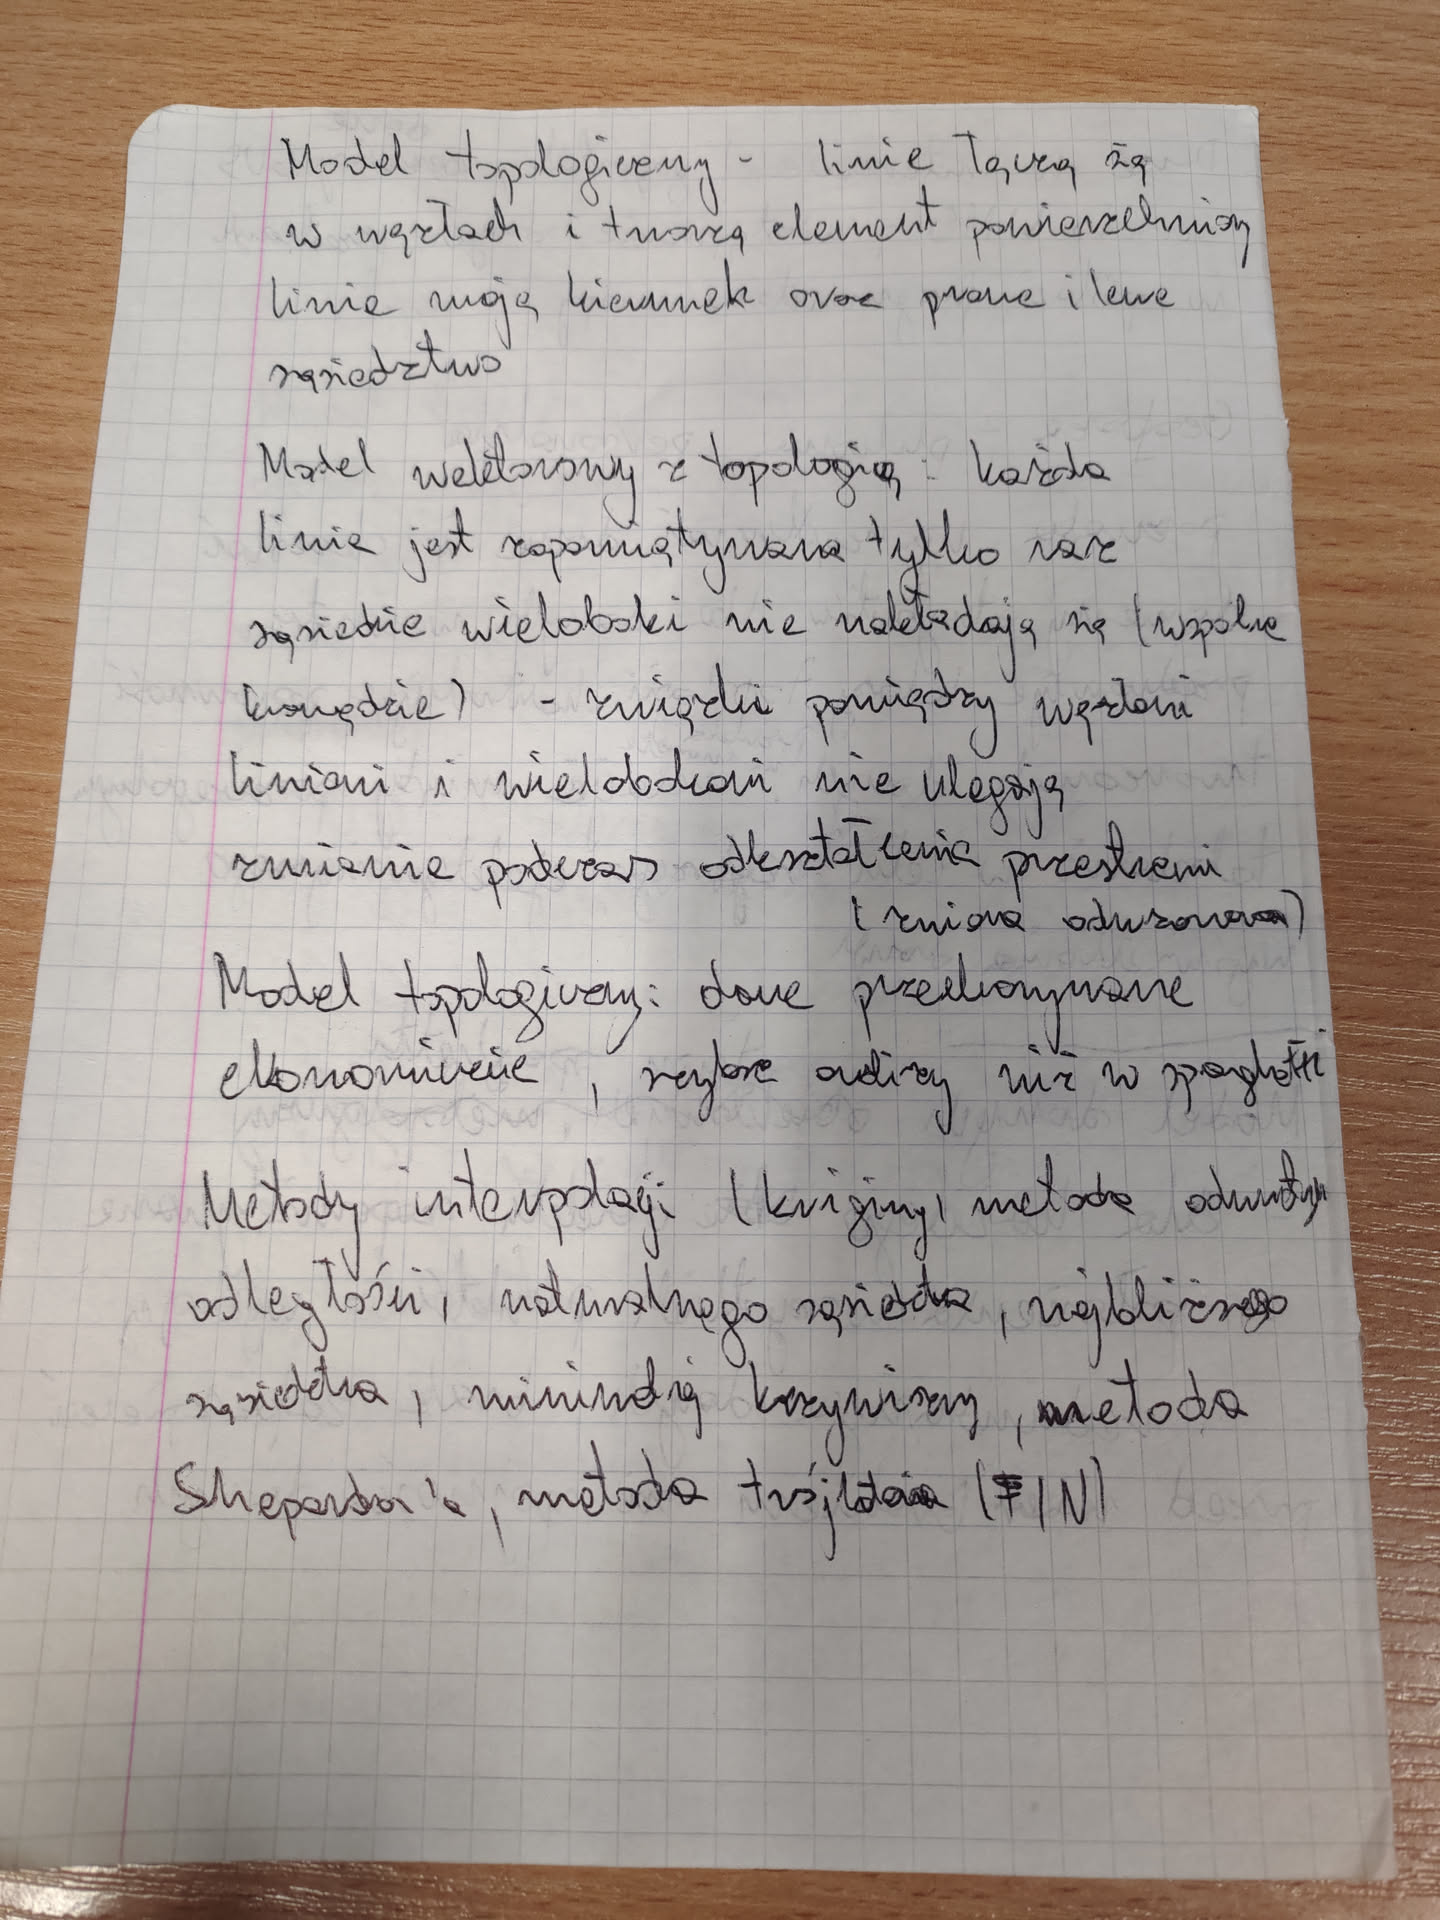 Model topologiczny - linie łączą się
w węzłach i tworzą element powierzchniowy
linie mają kierunek oraz prawe i lewe
sąsiedztwo
Model wektorowy z topologią: każda
linia jest zapamiętywana tylko raz
sąsiednie wieloboki nie nakładają się (wspólne
krawędzie) - związki pomiędzy węzłami
liniami i wielobokami nie ulegają
zmianie podczas odkształcenia przestrzeni
(zmiana odwzorowania)
Model topologiczny: dane przechowywane
ekonomicznie, szybsze analizy niż w spaghetti
Metody interpolacji (kriging, metoda odwrotnych
odległości, naturalnego sąsiedztwa, najbliższego
sąsiedztwa, minimalnej krzywizny, metoda
Sheparda'a, metoda trójkątów (TIN)